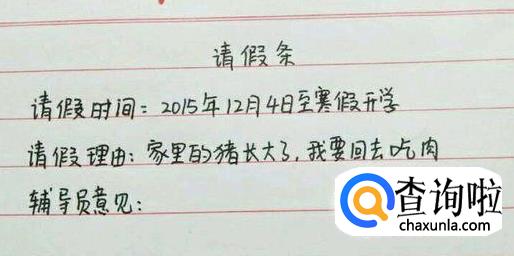 请假条
请假时间：2015年12月4日至寒假开学
请假理由：家里的猪长大了，我要回去吃肉
辅导员意见：
查询啦
chaxunla.com